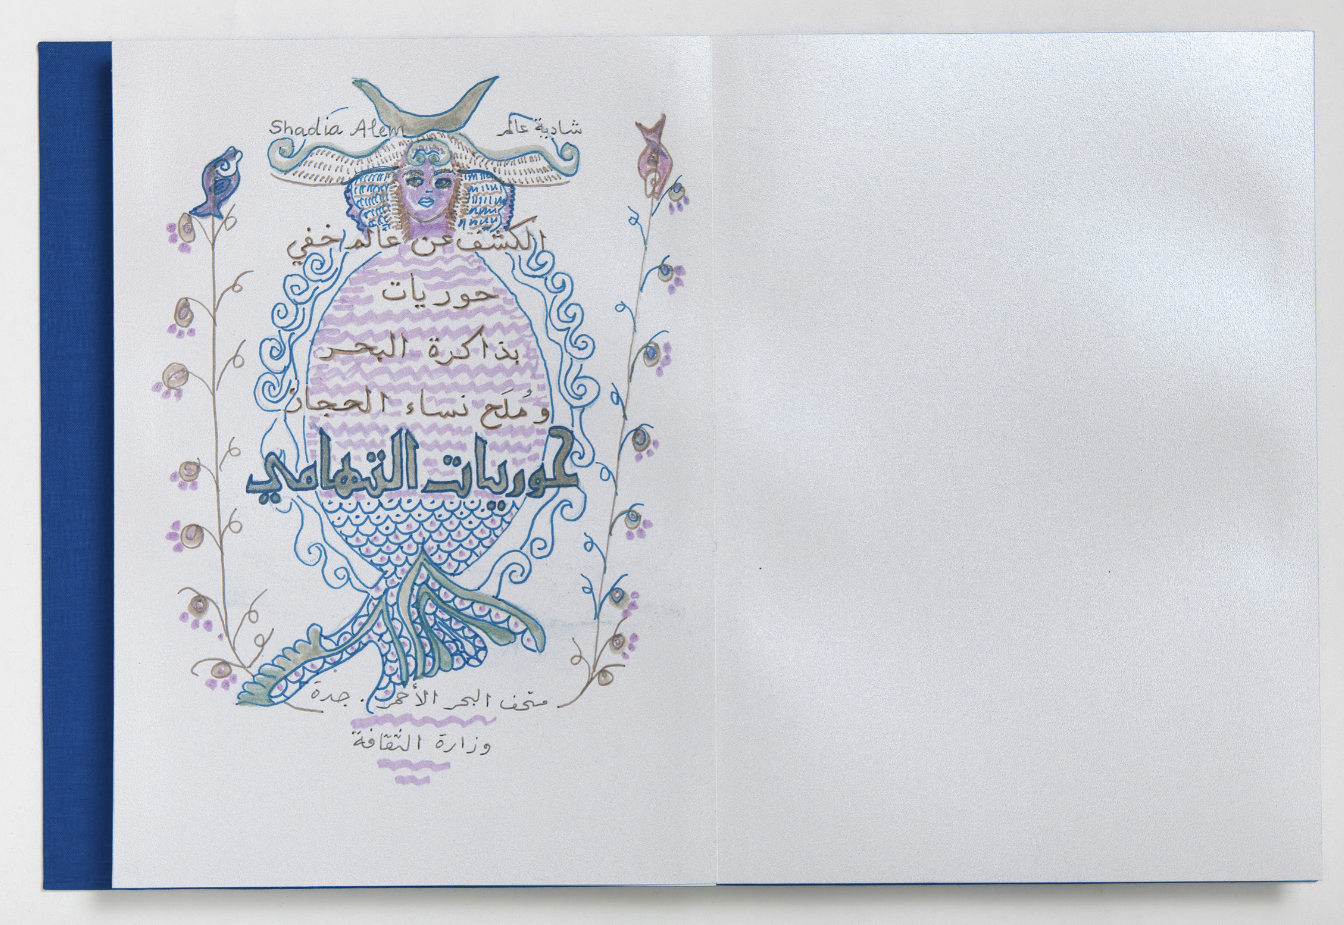 Shadia Alem شادية عالم
الكشف عن عالم خفي
حوريات
بذاكرة البحر
ومُلَح نساء الحجاز
حوريات التهامي
متحف البحر الأحمر . جدة
وزارة الثقافة